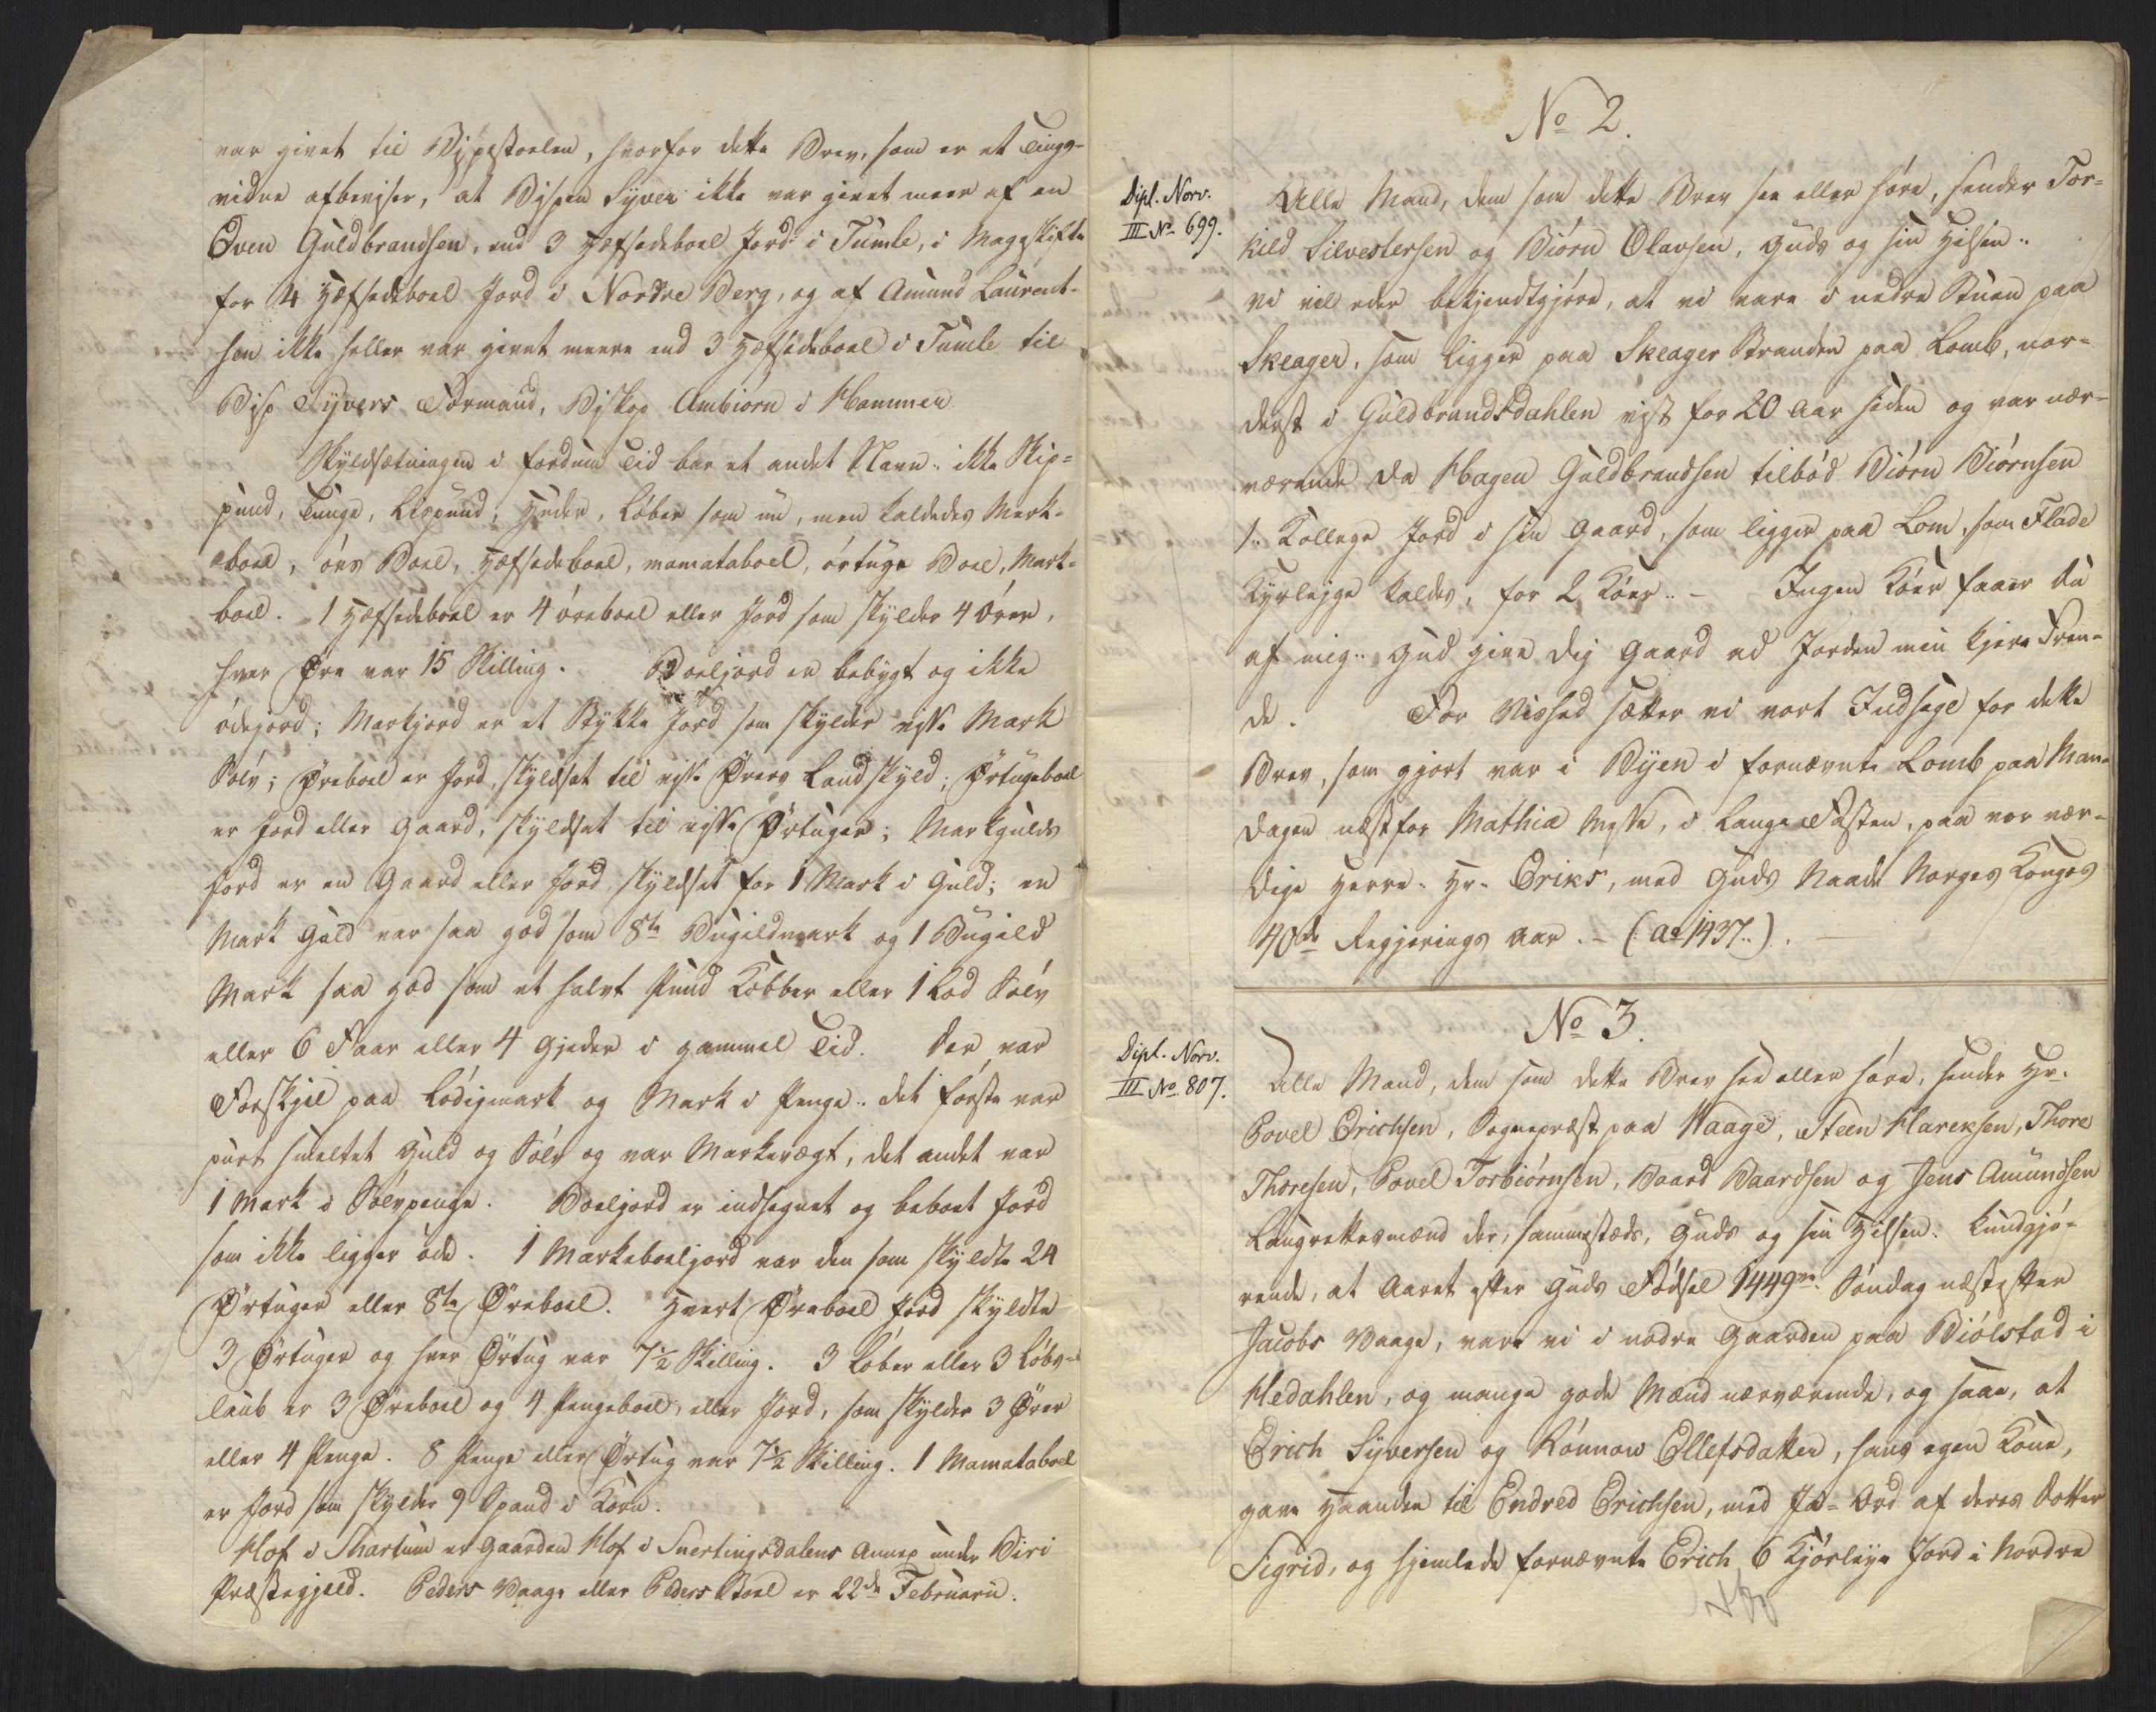 var givet til Bispestoelen, hvorfor dette Brev, som er et Tings-
vidne afbeviser, at Bispen Syver ikke var givet meer af en
Even Guldbrandsen, end 3 Høfsedeboel Jord i Tumle, i Mageskifte
for 4 Høfsedeboel Jord i Nordre Berg, og af Amund Laurent-
sen ikke heller var givet meere end 3 Høfsedeboel i Tumle til
Bisp Syvers Formand, Biskop Ambiørn i Hammer
Skyldsætningen i fordum Tid bar et andet Navn.. ikke Skip-
pund, Tunge, Lispund, Huder, Løber som nu, men kaldedes Mark-
boel, øres Boel, Høfsedeboel, mamataboel, ørtuge Boel, Mark-
boel. 1 Høfsedeboel er 4 øreboel eller Jord som skylder 4 Ører,
hver Øre var 15 Skilling. Boeljord er bebygt og ikke
ødejord; Markjord er et Stykke Jord som skylder visse Mark
Sølv; Øreboel er Jord, skyldsat til visse Ørers Landskyld; Ørtugeboel
er Jord eller Gaard, skyldsat til visse Ørtuger; Markgulds
jord er en Gaard eller Jord skyldsat for 1 Mark i Guld; en
Mark Guld var saa god som 8te Bugildmark og 1 Bugild
Mark saa god som et halvt Pund Kobber eller 1 Lod Sølv
eller 6 Faar eller 4 Gjeder i gammel Tid. Der var
Forskjel paa Lødigmark og Mark i Penge.. det første var
purt smeltet Guld og Sølv og var Markevægt, det andet var
1 Mark i Sølvpenge. Boeljord er indhegnet og beboet Jord
som ikke ligger øde. 1 Markeboeljord var den som skyldte 24
Ørtuger eller 8te Øreboel. Hvert Øreboel Jord skyldte
3 Ørtuger og hver Ørtug var 7½ Skilling. 3 Løber eller 3 Løbs-
laub er 3 Øreboel og 4 Pengeboel, eller Jord, som skylder 3 Ører
eller 4 Penge. 8 Penge eller Ørtug var 7½ Skilling. 1 Mamataboel
er Jord som skylder 9 Spand i Korn.
Hof i Thartum er Gaarden Hof i Snertingsdalens Annex under Biri
Præstegjeld. Peders Vaage eller Peders Stoel er 22de Februarii.
No 2.
Dipl. Norv.
III No 699.
Alle Mand, dem som dette Brev see eller høre, sender Tor-
kild Silvestersen og Biørn Olavsen, Guds og sin Hilsen..
vi vil eder bekjendtgjøre, at vi vare i nedre Stuen paa
Skeager, som ligger paa Skeager Stranden paa Lomb, nor-
derst i Guldbrandsdahlen vist for 20 Aar siden og var nær-
værende da Hagen Guldbrandsen tilbød Biørn Biørnsen
1.. Kollege Jord i sin Gaard, som ligger paa Lom, som Flade
Kyrlejge kaldes, for 2 Køer.. - Ingen Køer faaer du
af mig.. Gud give dig Gaard ad Jorden min kjere Fren-
de. For Vished sætter vi vort Indsegl for dette
Brev, som gjort var i Byen i fornævnte Lomb paa Man-
dagen næstfor Mathia Messe, i Lange Fasten, paa vor vær-
dige Herre.. Hr. Eriks, med Guds Naade Norges Konges
40de Regjerings Aar. - (Ao 1437..). -
No 3.
Dipl. Norv.
III No 807.
Alle Mand, dem som dette Brev see eller høre, sender Hr.
Povel Erichsen, Sognepræst paa Waage, Steen Hareksen, Thore
Thoresen, Povel Torbiørnsen, Baard Baardsen og Jens Amundsen
Laugrettesmænd der, sammestæds, Guds og sin Hilsen: kundgjø-
rende, at Aaret efter Guds Fødsel 1449ve Søndag næstefter
Jacobs Vaage, vare vi i nedre Gaarden paa Biølstad i
Hedahlen, og mange gode Mænd nærværende, og saae, at
Erich Syversen og Rønnow Ellefsdatter, hans egen Kone,
gave Haanden til Endred Erichsen, med Ja-Ord af deres Dotter
Sigrid, og hjemlede fornævnte Erich 6 Kjørleye Jord i Nordre